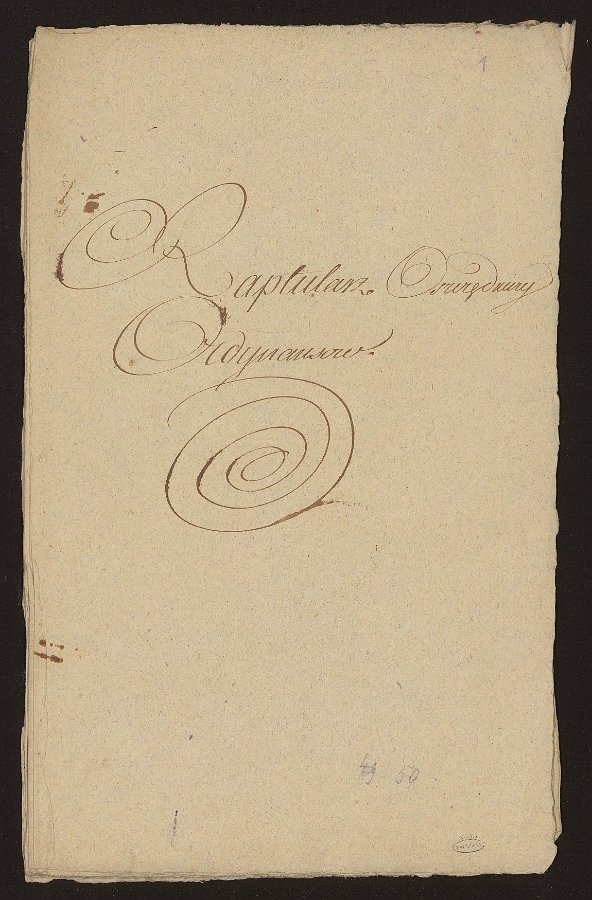 1
Raptularz Oszczędzony
Ordynansow.
49 50